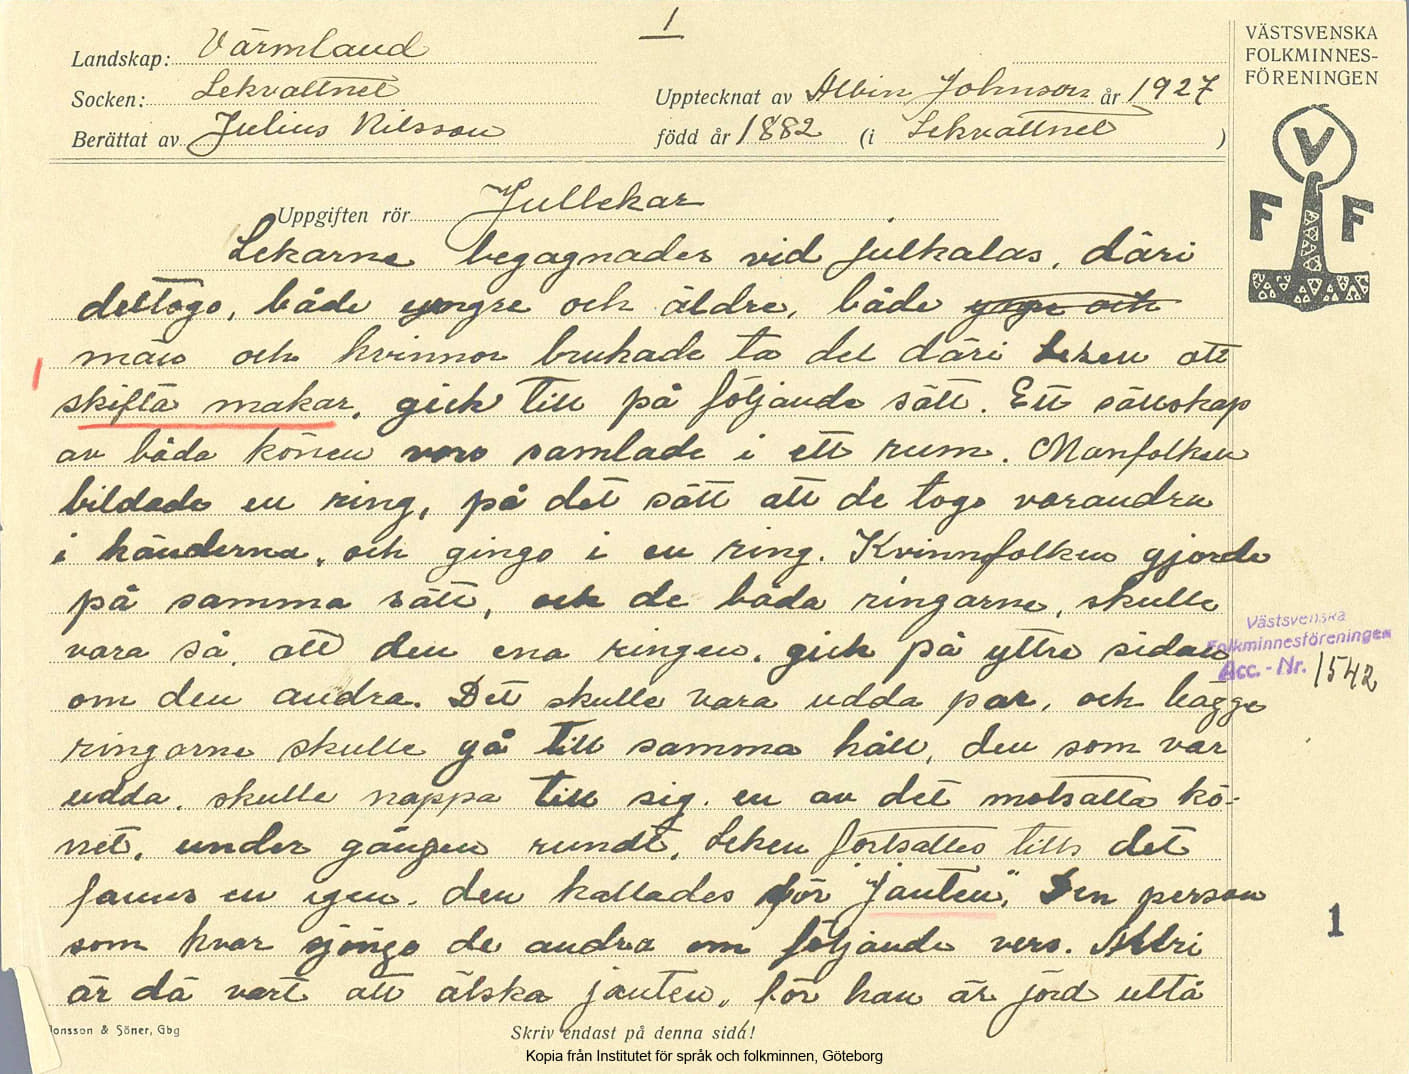 1
VÄSTSVENSKA
FOLKMINNES-
FÖRENINGEN
V
F F
Landskap: Värmland
Socken: Lekvattnet
Upptecknat av Albin Johnson år 1927
Berättat av Julius Nilsson
född år 1882 (i Lekvattnet )
Uppgiften rör Jullekar
Lekarne begagnades vid julkalas, däri
deltogo, både yngre och äldre, både yngre och
män och kvinnor brukade ta del däri Leken att
skifta makar, gick till på följande sätt. Ett sällskap
av båda könen voro samlade i ett rum. Manfolken
bildade en ring, på det sätt att de togo varandra
i händerna, och gingo i en ring. Kvinnfolken gjorde
på samma sätt, och de båda ringarne, skulle
vara så, att den ena ringen, gick på yttre sidan
om den andra. Det skulle vara udda par, och bägge
ringarne skulle gå till samma håll, den som var
udda, skulle nappa till sig, en av det motsatta kö-
net, under gången rundt, Leken fortsattes tills det
fanns en igen, den kallades för "janten", Den person
som kvar sjöngo de andra om följande vers. Alldri
är dä värt att älska janten, för han är jörd uttå
Västsvenska
Folkminnesföreningen
Acc.-Nr. 1542
1
Jonsson & Söner, Gbg
Skriv endast på denna sida!
Kopia från Institutet för språk och folkminnen, Göteborg